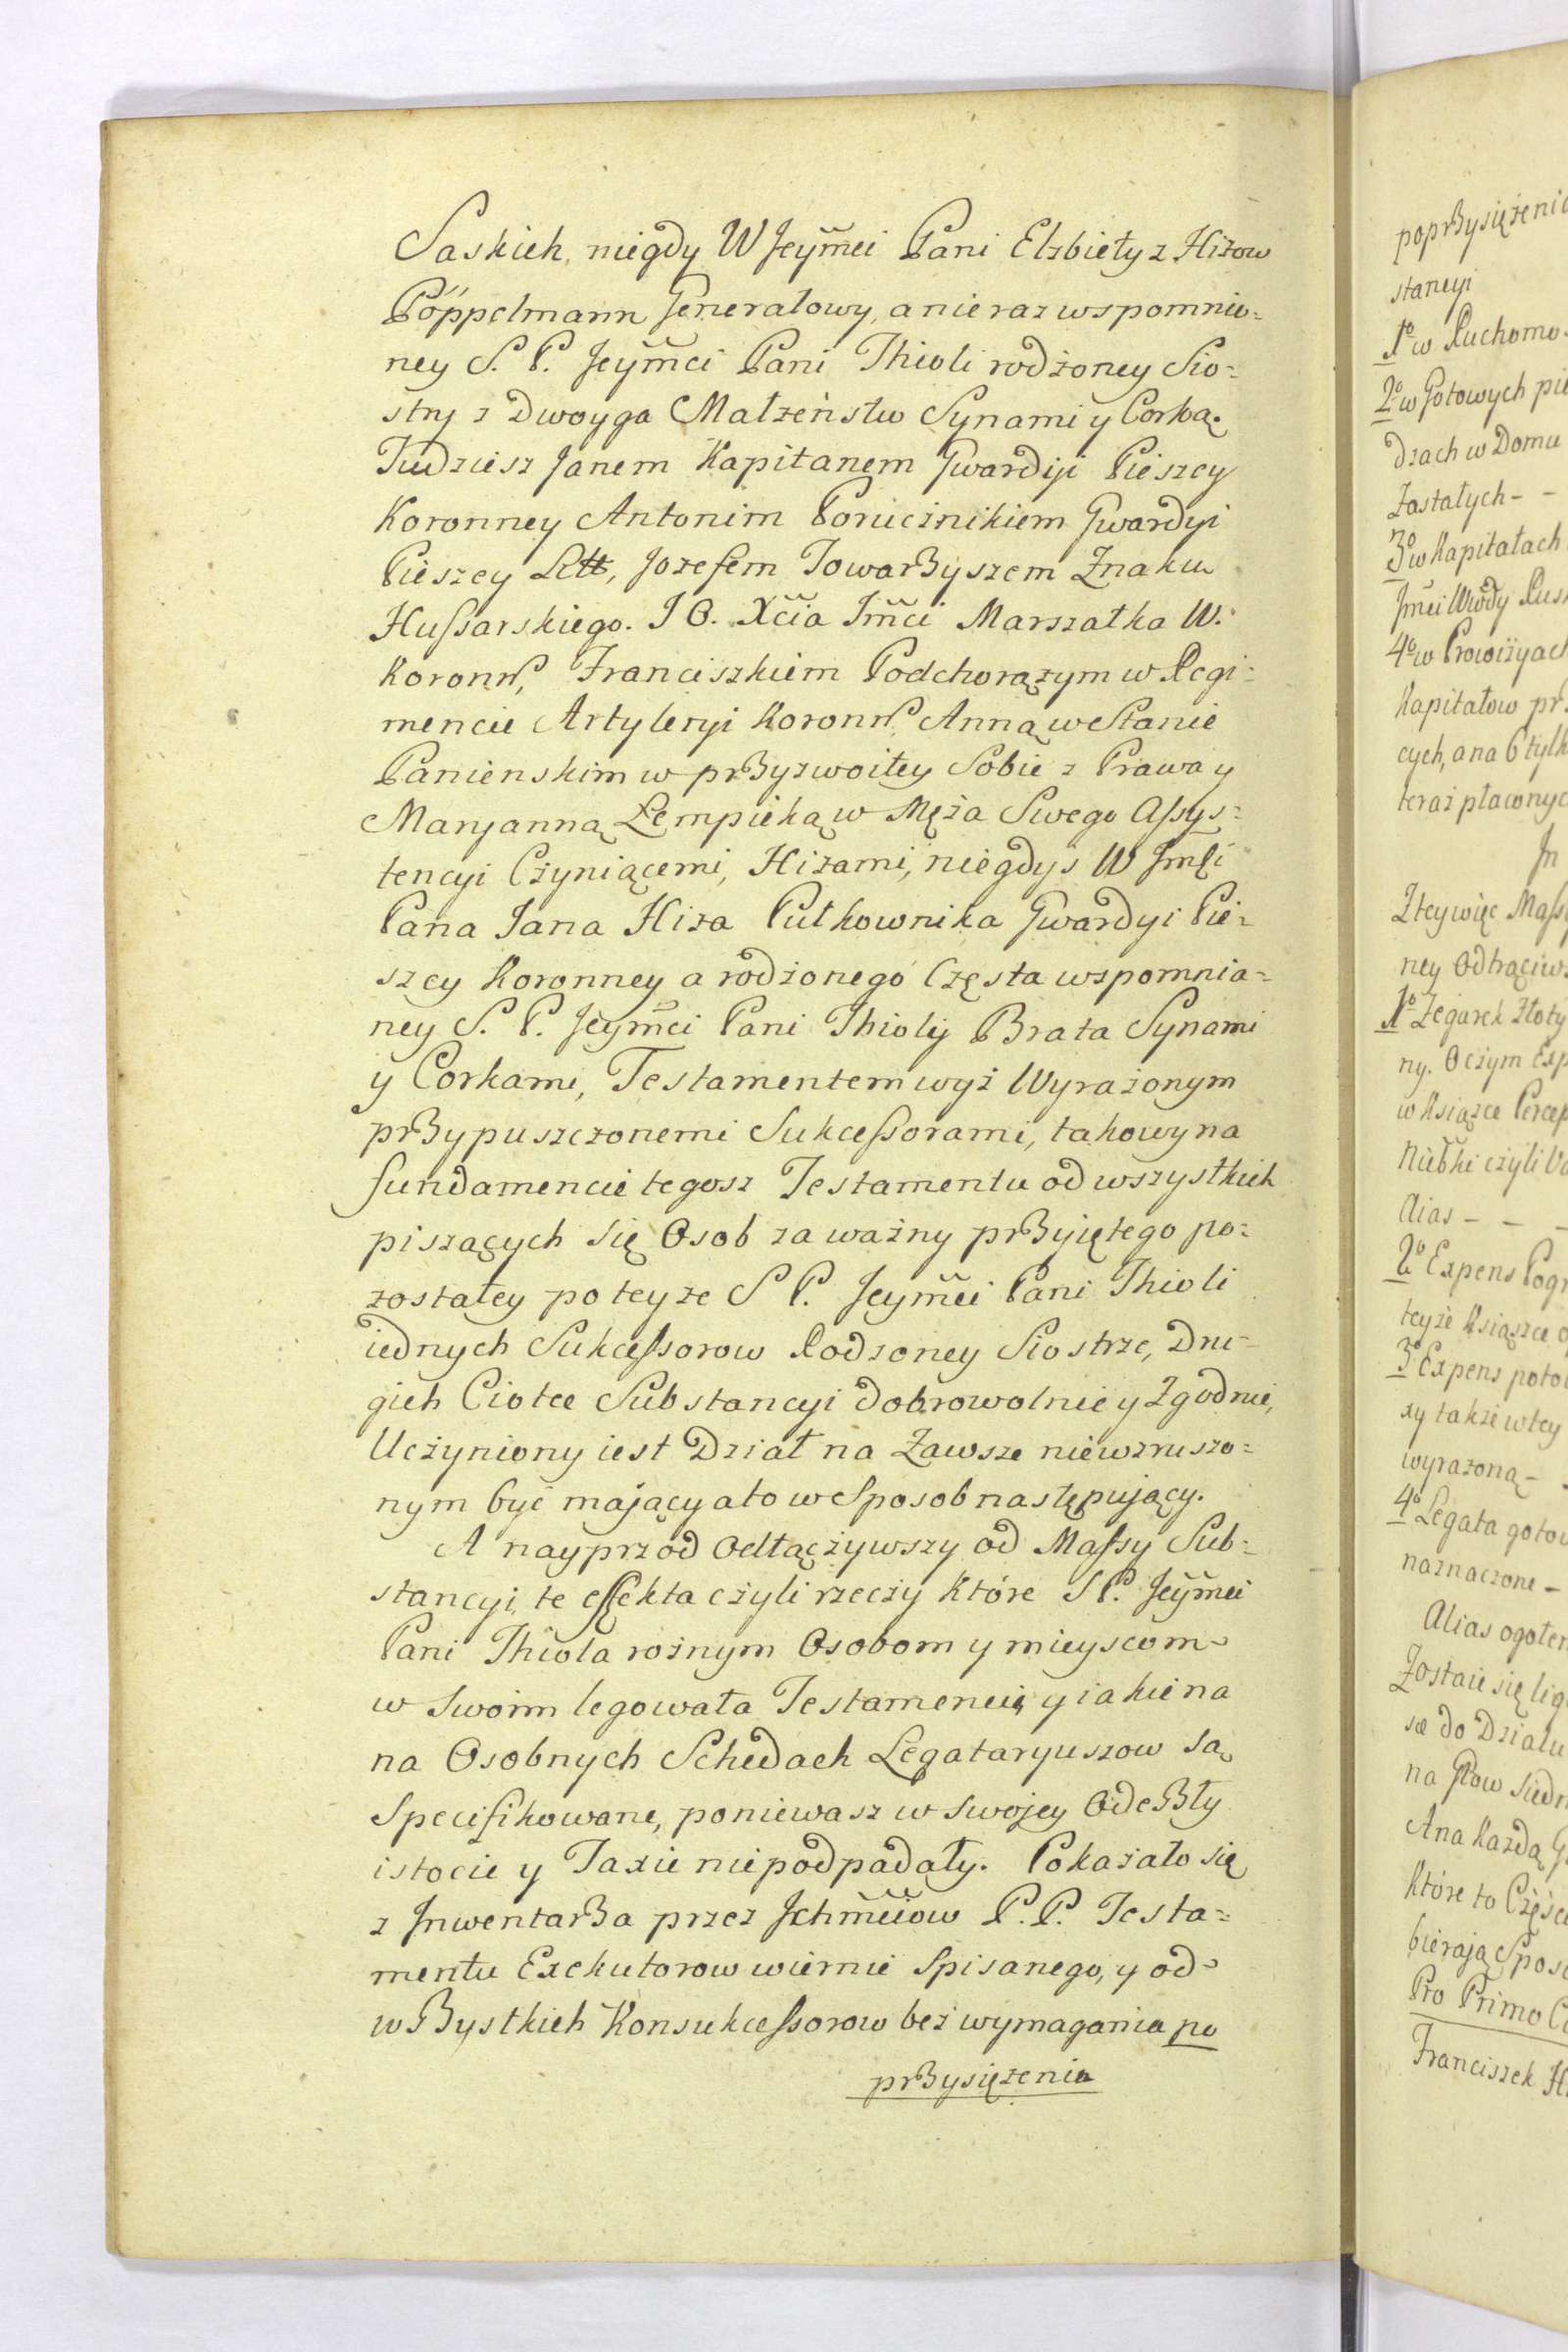 Saskich, niegdy W Jeymci Pani Elzbiety z Hizow
Pöppelmann Generałowy, a nie raz wspomnio=
ney S. P. Jeymci Pani Thioli rodzoney Sio=
stry z Dwoyga Małzeństw Synami y Corką.
Tudziesz Janem Kapitanem Gwardiji Pieszey
Koronney Antonim Porucznikiem Gwardyi
Pieszey Litt, Jozefem Towarzyszem Znaku
Hussarskiego. J O. Xcia Jmci Marszałka W.
Koronn, Franciszkiem Podchorązym w Regi=
mencie Artyleryi Koronn, Anną w Stanie
Panienskim w przyzwoitey Sobie z Prawa y
Maryanną Łempicką w Męża Swego Assys=
tencyi Czyniącemi, Hizami, niegdys W Jmci
Pana Jana Hiza Pułkownika Gwardyi Pie=
szey Koronney a rodzonego Często wspomnia=
ney S. P. Jeymci Pani Thioly Brata Synami
y Corkami, Testamentem wyż Wyrażonym
przypuszczonemi Sukcessorami, takowy na
fundamencie tegosz Testamentu od wszystkich
piszących się Osob za ważny przyiętego po=
zostałey po teyze S P. Jeymci Pani Thioli
iednych Sukcessorow Rodzoney Siostrze, Dru=
gich Ciotce Substancyi dobrowolnie y Zgodnie,
Uczyniony iest Dział na Zawsze niewzruszo=
nym być mający a to w Sposob następujący.
A nayprzod Odłączywszy od Massy Sub=
stancyi, te effekta czyli rzeczy które S P. Jeymci
Pani Thiola rożnym Osobom y mieyscom
w Swoim legowała Testamencie, y iakie na
na Osobnych Schedach Legataryuszow są
Specifikowane, poniewasz w swojey Odeszły
istocie y Taxie nie podpadały. Pokazało się
z Inwentarza przez Jchmciow P. P. Testa=
mentu Exekutorow wiernie Spisanego, y od
wszystkich Konsukcessorow bez wymagania po
przysięzenia
poprzysięzenia
stancyi
1º w Ruchomo
2º w Gotowych pie
dzach w Domu
Zostałych - -
3º w Kapitałach
Jmci Wrody Rusk
4º w Prowizyach
Kapitałow prz
cych, a na 6 tylk
teraz płaconyc
Jn
Z tey więc Massy
ney Odtrąciws
1º Zegarek Złoty
ny. O czym Exp
w Ksiązce Percep
Alias - - -
2º Expens Pogr
teyże Ksiązce o
3º Expens poto
xy takze w tey
wyrazoną -
4º Legata goto
naznaczone -
Alias ogołem
Zostaie się liq
się do Działu
na Głow Siedm
A na Kazdą G
Które to Części
bierają Sposo
Pro Primo C
Franciszek H